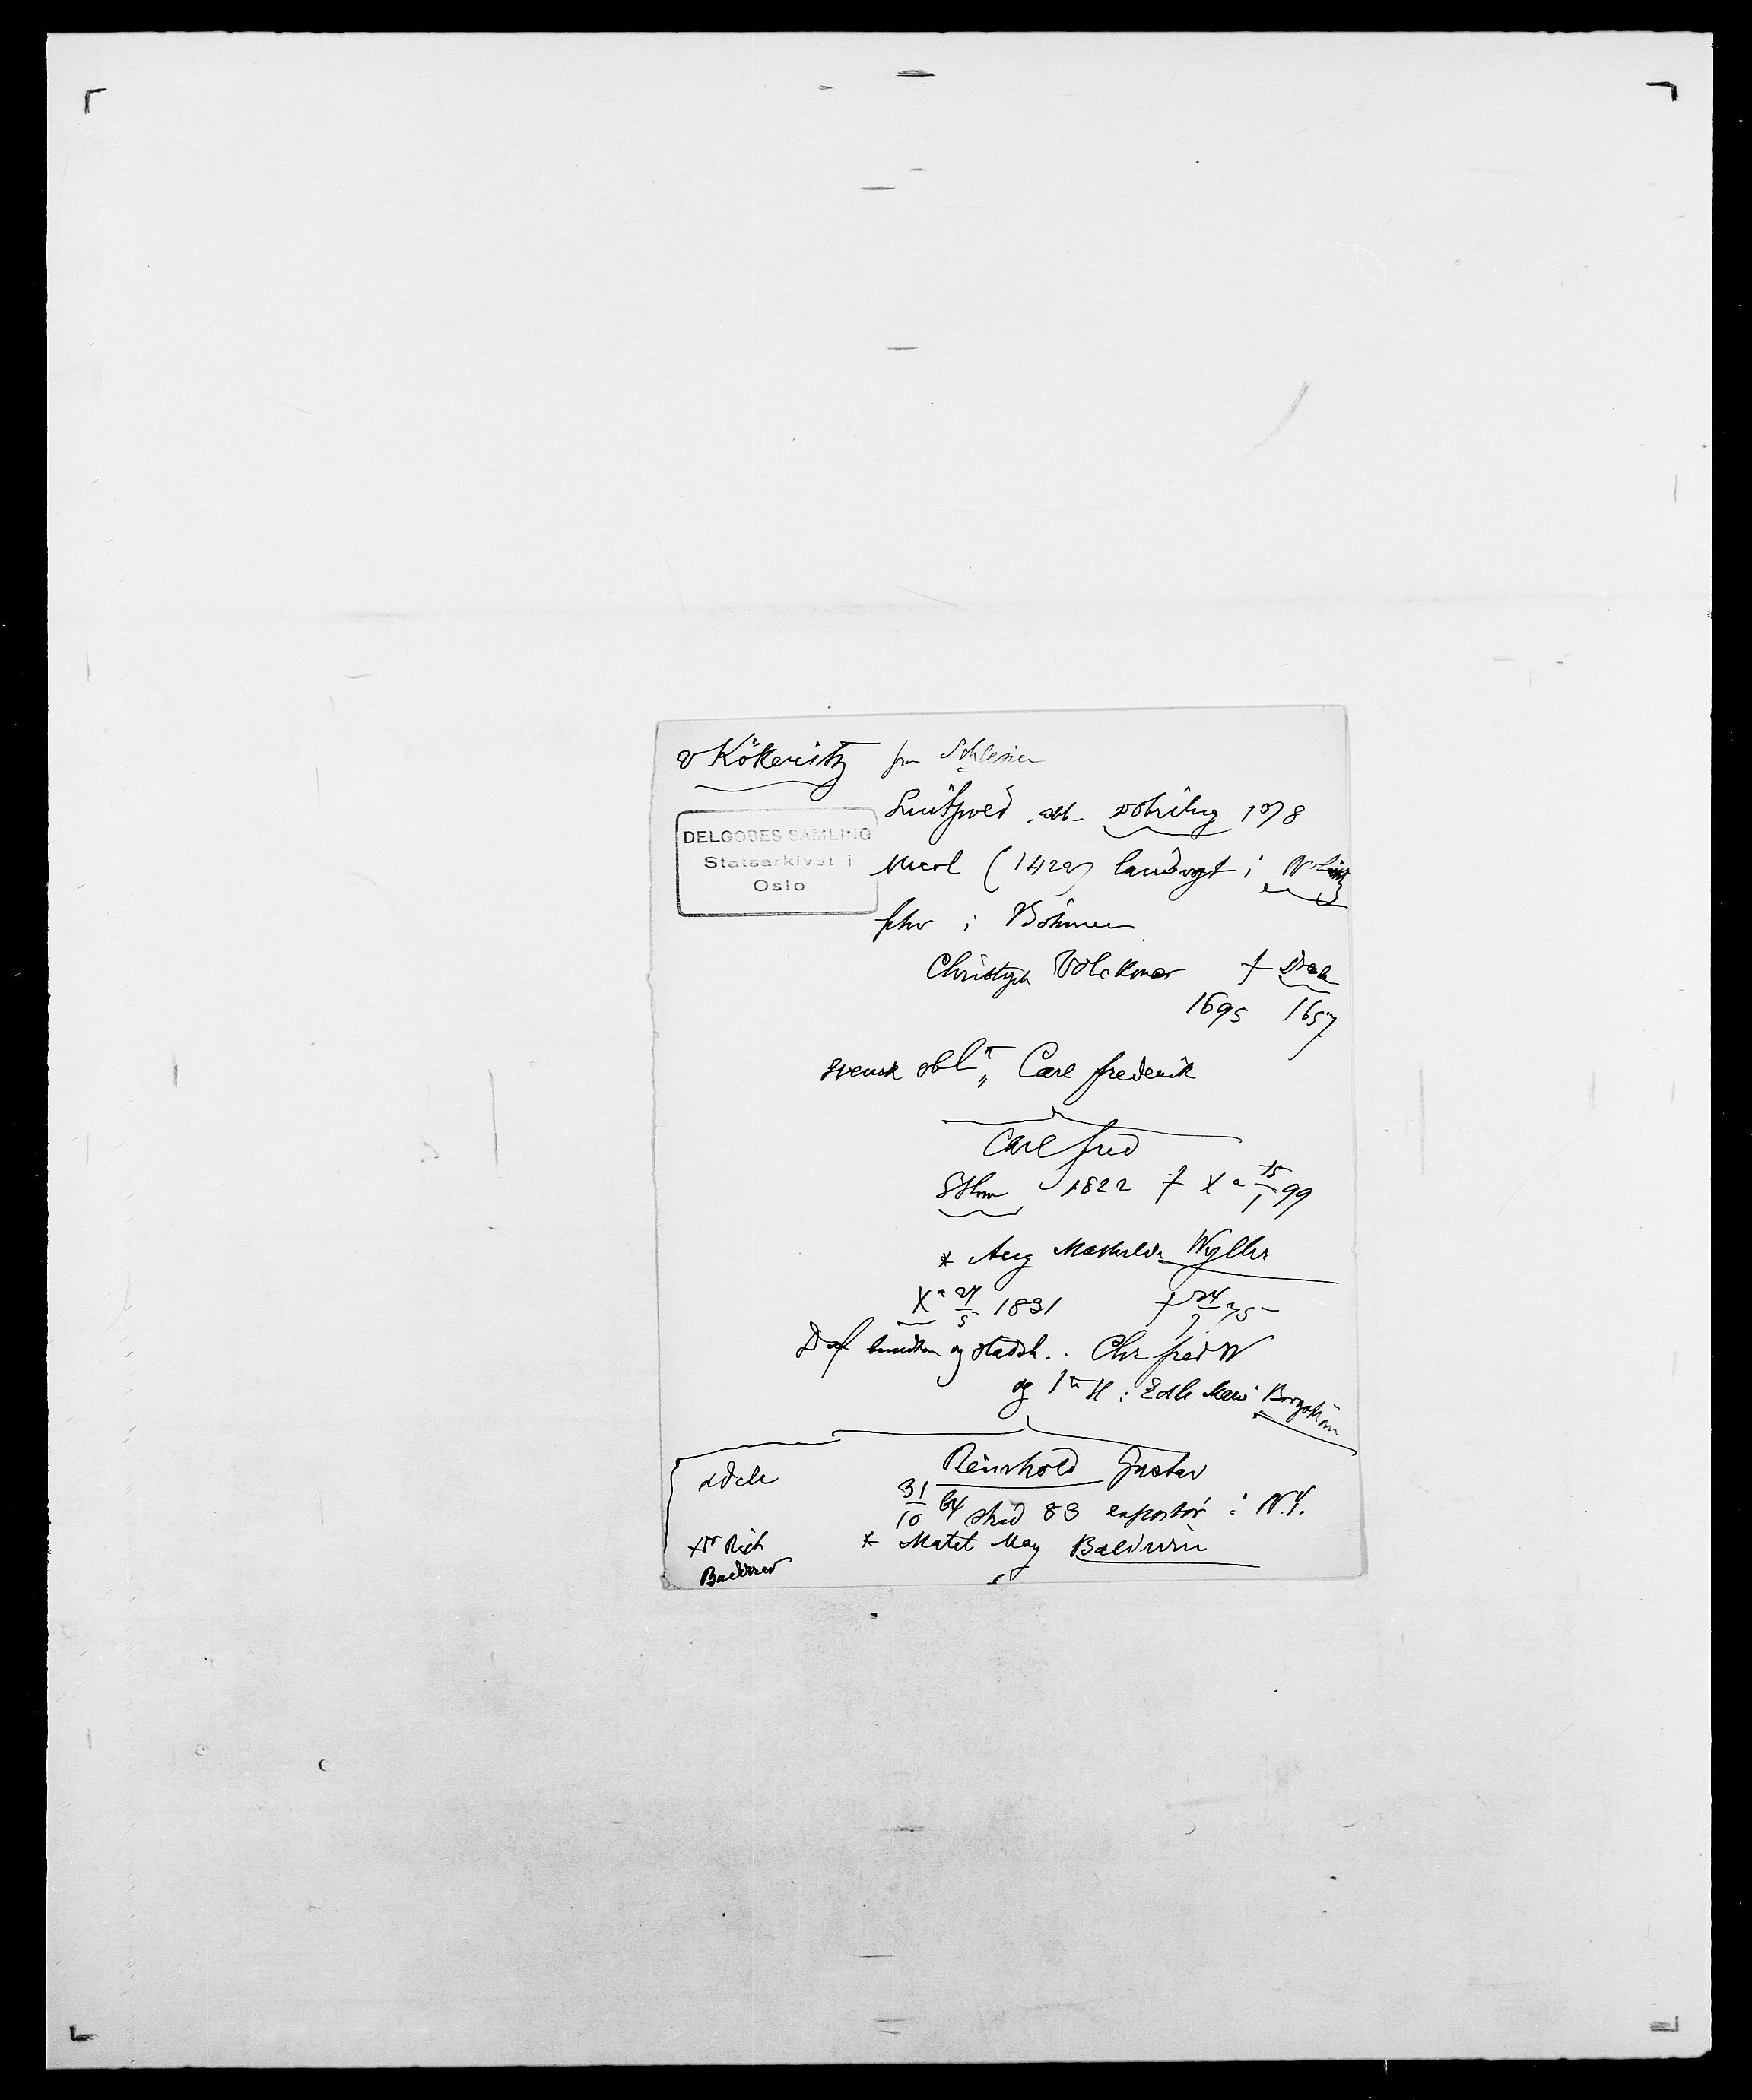 v Kökeritz fra Schlesien
DELGOBES SAMLING
Statsarkivet i
Oslo
Luitfried abb Dobrilug 1378
Nicol (1422) landvogt i
fhr i Böhmen
Christoph Volckmar †
1695 1657
svensk oblt Carl Frederik
Carl Fred
Sthm 1822 † Xa 15/1 99
* Aug Mathilde Wyller
Xa 27/5 1831 † 24/7 75
D af og stadsh. Chr Fred W
og 1te H: Edle Marie Borgstrøm
Adele
Reinhold Gustav
31/10 64 stud 83 exportør i N.Y.
* May Baldwin
Rich